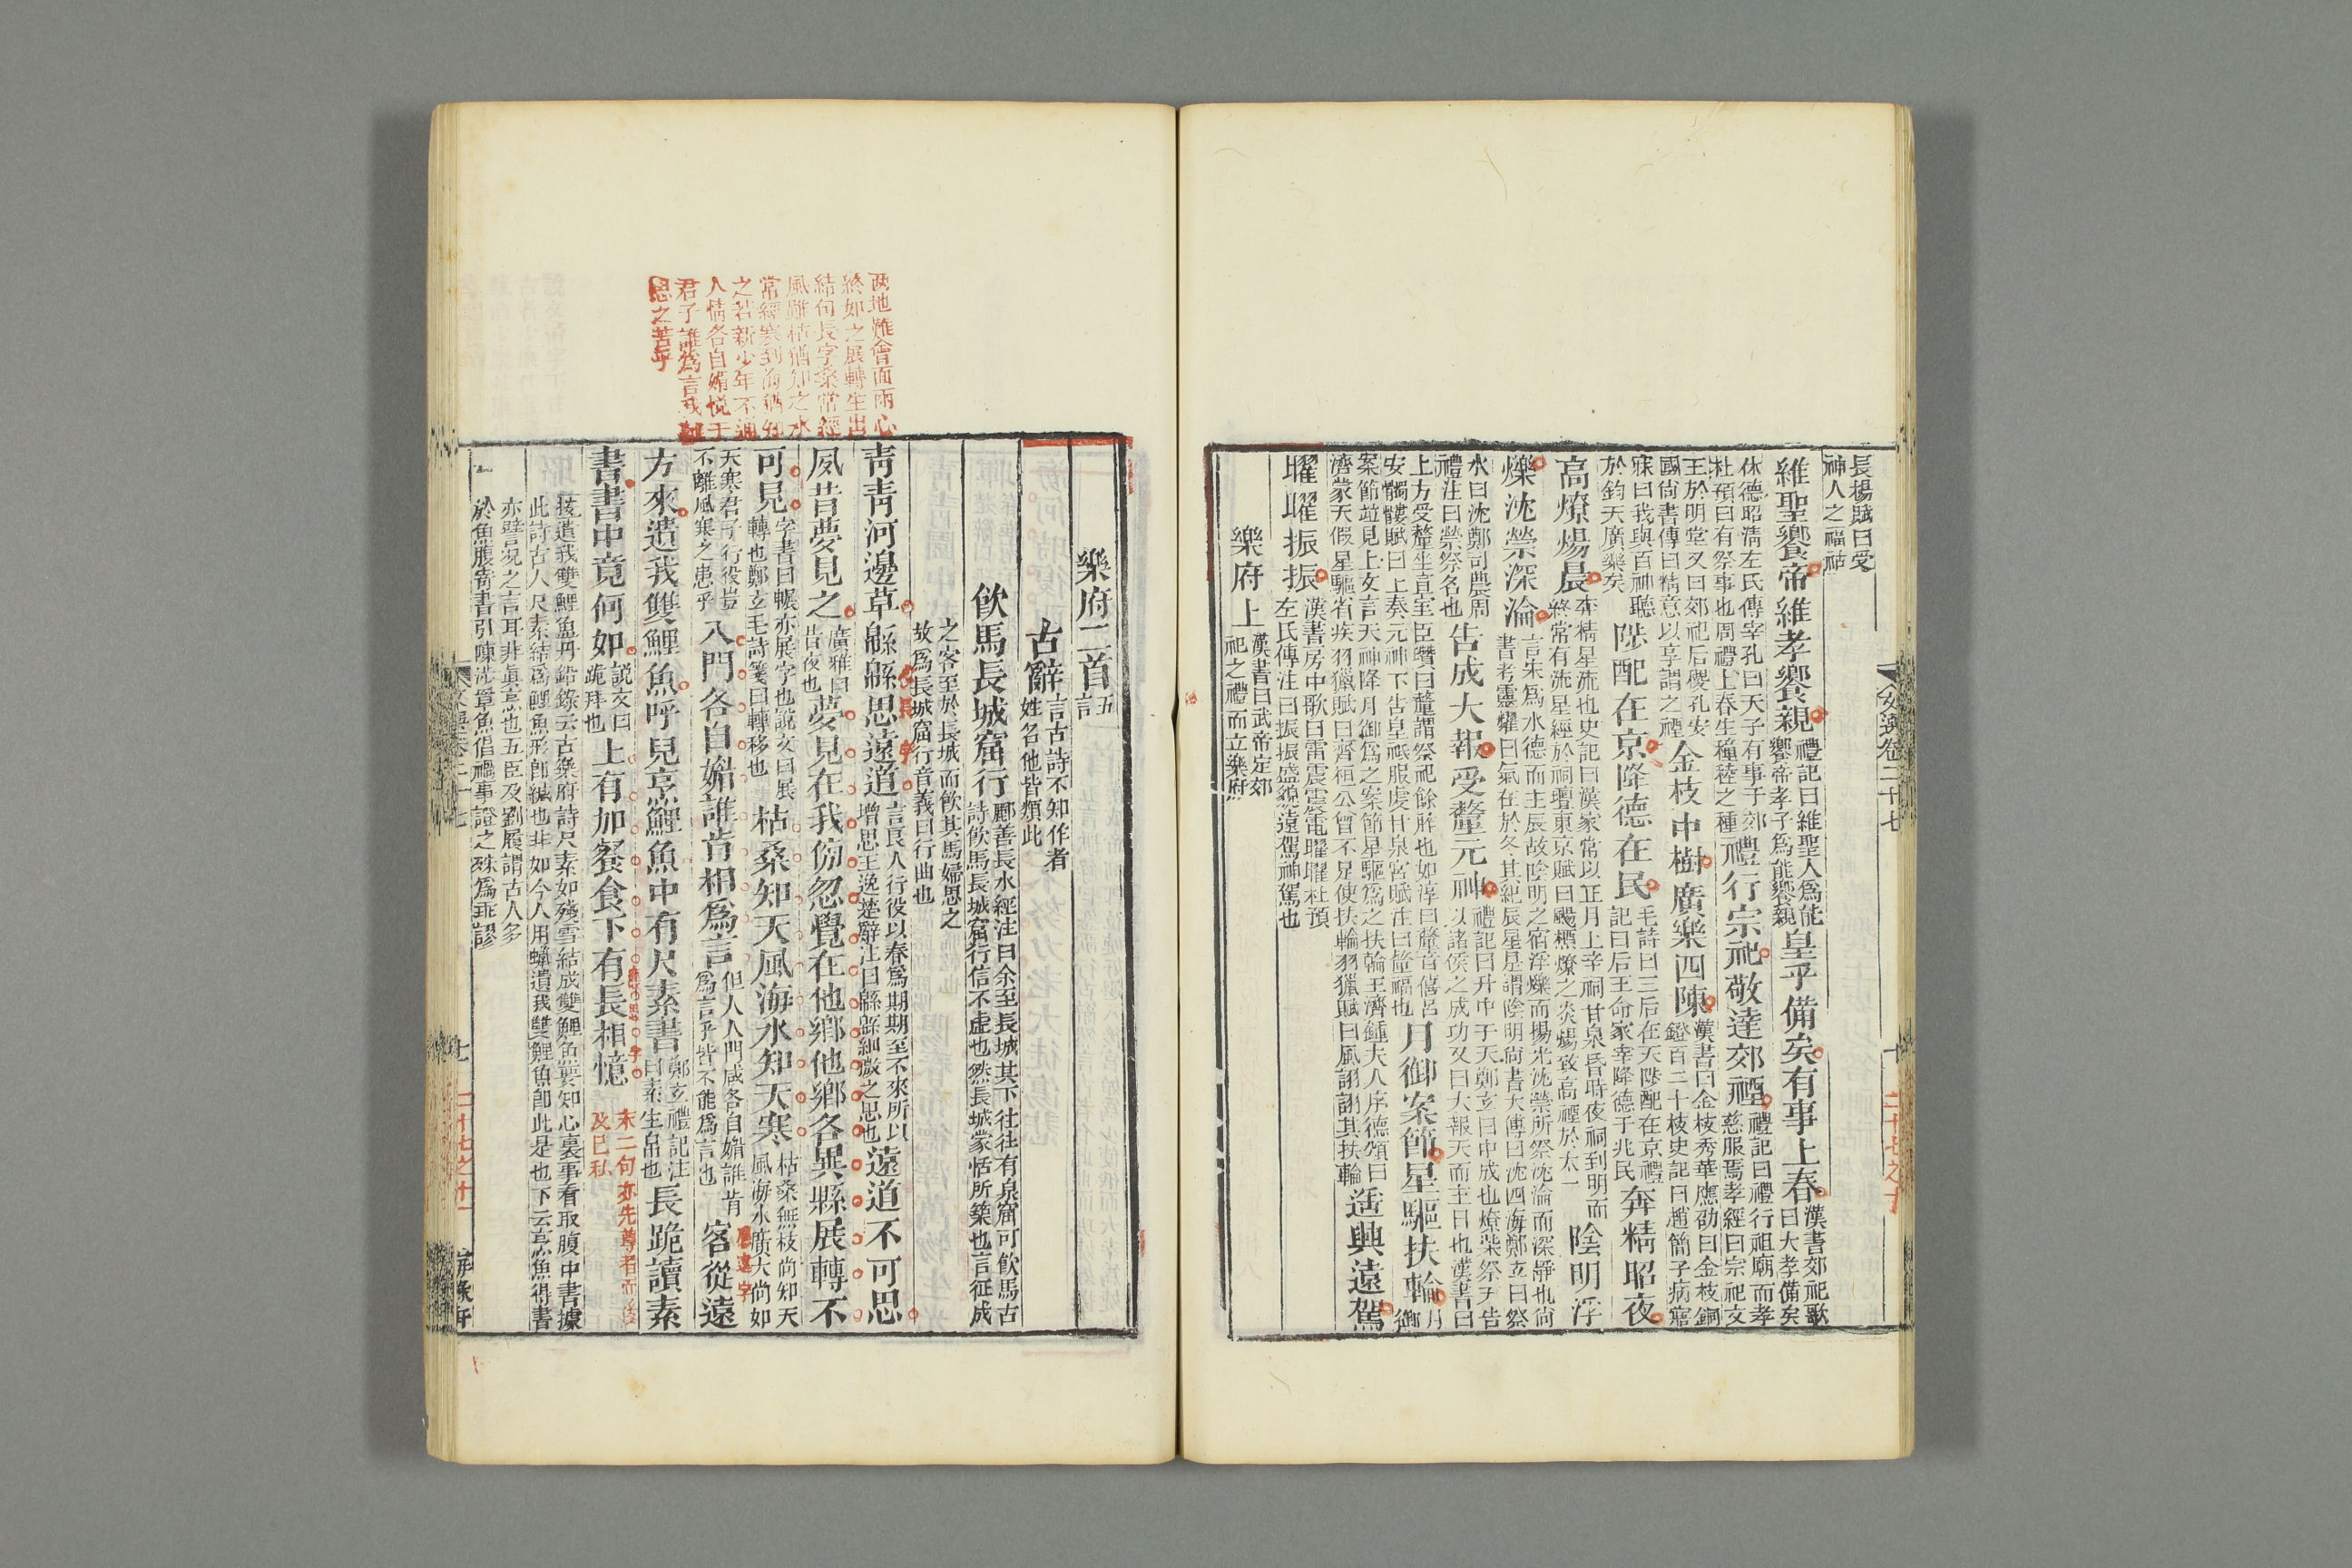 長楊賦曰受
神人之福祜
維聖饗帝維孝饗親禮記曰維聖人爲能皇乎備矣有事上春漢書郊祀歌
饗帝孝子爲能饗親曰大孝備矣
休德昭淸左氏傳宰孔曰天子有事于郊禮行宗祀敬達郊禋禮記曰禮行祖廟而孝
杜預曰有祭事也周禮上春生穜稑之種慈服焉孝經曰宗祀文
王於明堂又曰郊祀后稷孔安金枝中樹廣樂四陳漢書曰金枝秀華應劭曰金枝銅
國尚書傳曰精意以享謂之禋鐙百二十枝史記曰趙簡子病寤
寐曰我與百神聽陟配在京降德在民毛詩曰三后在天陟配在京禮奔精昭夜
於鈞天廣樂矣記曰后王命冢宰降德于兆民
高燎煬晨奔精星流也史記曰漢家常以正月上辛祠甘泉昏時夜祠到明而陰明浮
終常有流星經於祠壇東京賦曰颺槱燎之炎煬致高禋於太一
爍沈禜深淪言朱爲水德而主辰故陰明之宿浮爍而揚光沈禜所祭沈淪而深靜也尚
書考靈耀曰氣在於冬其紀辰星是謂陰明尚書大傳曰沈四海鄭玄曰祭
水曰沈鄭司農周告成大報受釐元神禮記曰升中于天鄭玄曰中成也燎柴祭天告
禮注曰禜祭名也以諸侯之成功又曰大報天而主日也漢書曰
上方受釐坐宣室臣瓚曰釐謂祭祀餘胙也如淳曰釐音僖呂月御案節星驅扶輪月
安髑髏賦曰上奏元神下告皇祇服虔甘泉宮賦注曰釐福也御
案節竝見上文言天神降月御爲之案節星驅爲之扶輪王濟鍾夫人序德頌曰遙興遠駕
濟蒙天假星驅省疾羽獵賦曰齊桓公曾不足使扶輪羽獵賦曰風詡詡其扶輪
曜曜振振漢書房中歌曰雷震震電曜曜杜預
左氏傳注曰振振盛貌遠駕神駕也
樂府上漢書曰武帝定郊
祀之禮而立樂府
文選卷二十七
十
二十七之十
樂府二首五言
古辭言古詩不知作者
姓名他皆類此
飮馬長城窟行酈善長水經注曰余至長城其下往往有泉窟可飮馬古
詩飮馬長城窟行信不虛也然長城蒙恬所築也言征戍
之客至於長城而飮其馬婦思之
故爲長城窟行音義曰行曲也
靑靑河邊草緜緜思遠道言良人行役以春爲期期至不來所以遠道不可思
增思王逸楚辭注曰緜緜細微之思也
夙昔夢見之廣雅曰夢見在我傍忽覺在他鄉他鄉各異縣展轉不
昔夜也
可見字書曰輾亦展字也說文曰展枯桑知天風海水知天寒枯桑無枝尚知天
轉也鄭玄毛詩箋曰轉移也風海水廣大尚知
天寒君子行役豈入門各自媚誰肯相爲言但人入門咸各自媚誰肯客從遠
不離風寒之患乎爲言乎皆不能爲言也
方來遺我雙鯉魚呼兒烹鯉魚中有尺素書鄭玄禮記注長跪讀素
曰素生帛也
書書中竟何如說文曰上有加餐食下有長相憶
跪拜也
末二句亦先尊者而後
及已私
按遺我雙鯉魚丹鉛錄云古樂府詩尺素如殘雪結成雙鯉魚要知心裏事看取腹中書據
此詩古人尺素結爲鯉魚形卽緘也非如今人用蠟遺我雙鯉魚卽此是也下云烹魚得書
亦譬況之言耳非眞烹也五臣及劉履謂古人多
於魚腹寄書引陳涉罩魚倡禍事證之殊爲乖謬
兩地難會面兩心
終如之展轉生出
結句長字桑常經
風雖枯猶知之水
常經寒到海猶知
之若新少年不通
人情各自媚悅于
君子誰爲言我離
思之苦乎
二十七之十一
海錄軒